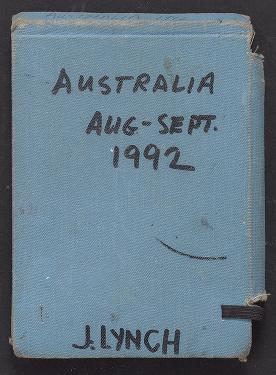 AUSTRALIA
AUG-SEPT.
1992
J. LYNCH